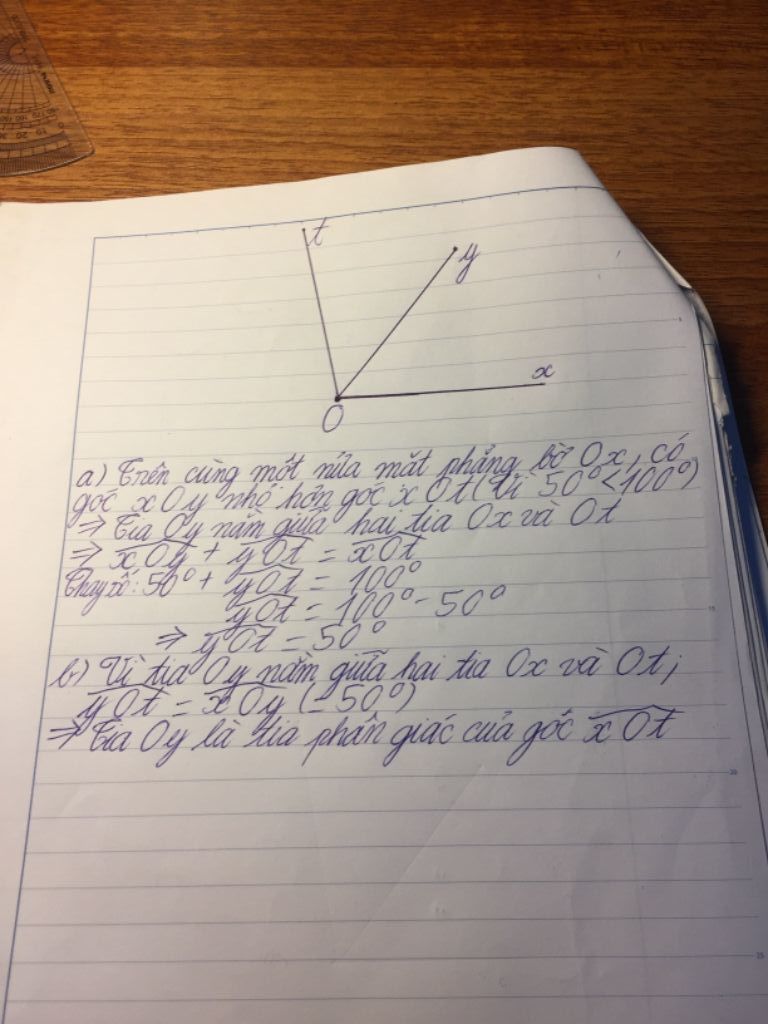 t
y
x
O
a) Trên cùng một nửa mặt phẳng bờ Ox, có
góc xOy nhỏ hơn góc xOt (vì 50° < 100°)
⇒ Tia Oy nằm giữa hai tia Ox và Ot
⇒ xOy + yOt = xOt
Thay số: 50° + yOt = 100°
yOt = 100° - 50°
⇒ yOt = 50°
b) Vì tia Oy nằm giữa hai tia Ox và Ot;
yOt = xOy (= 50°)
⇒ Tia Oy là tia phân giác của góc xOt